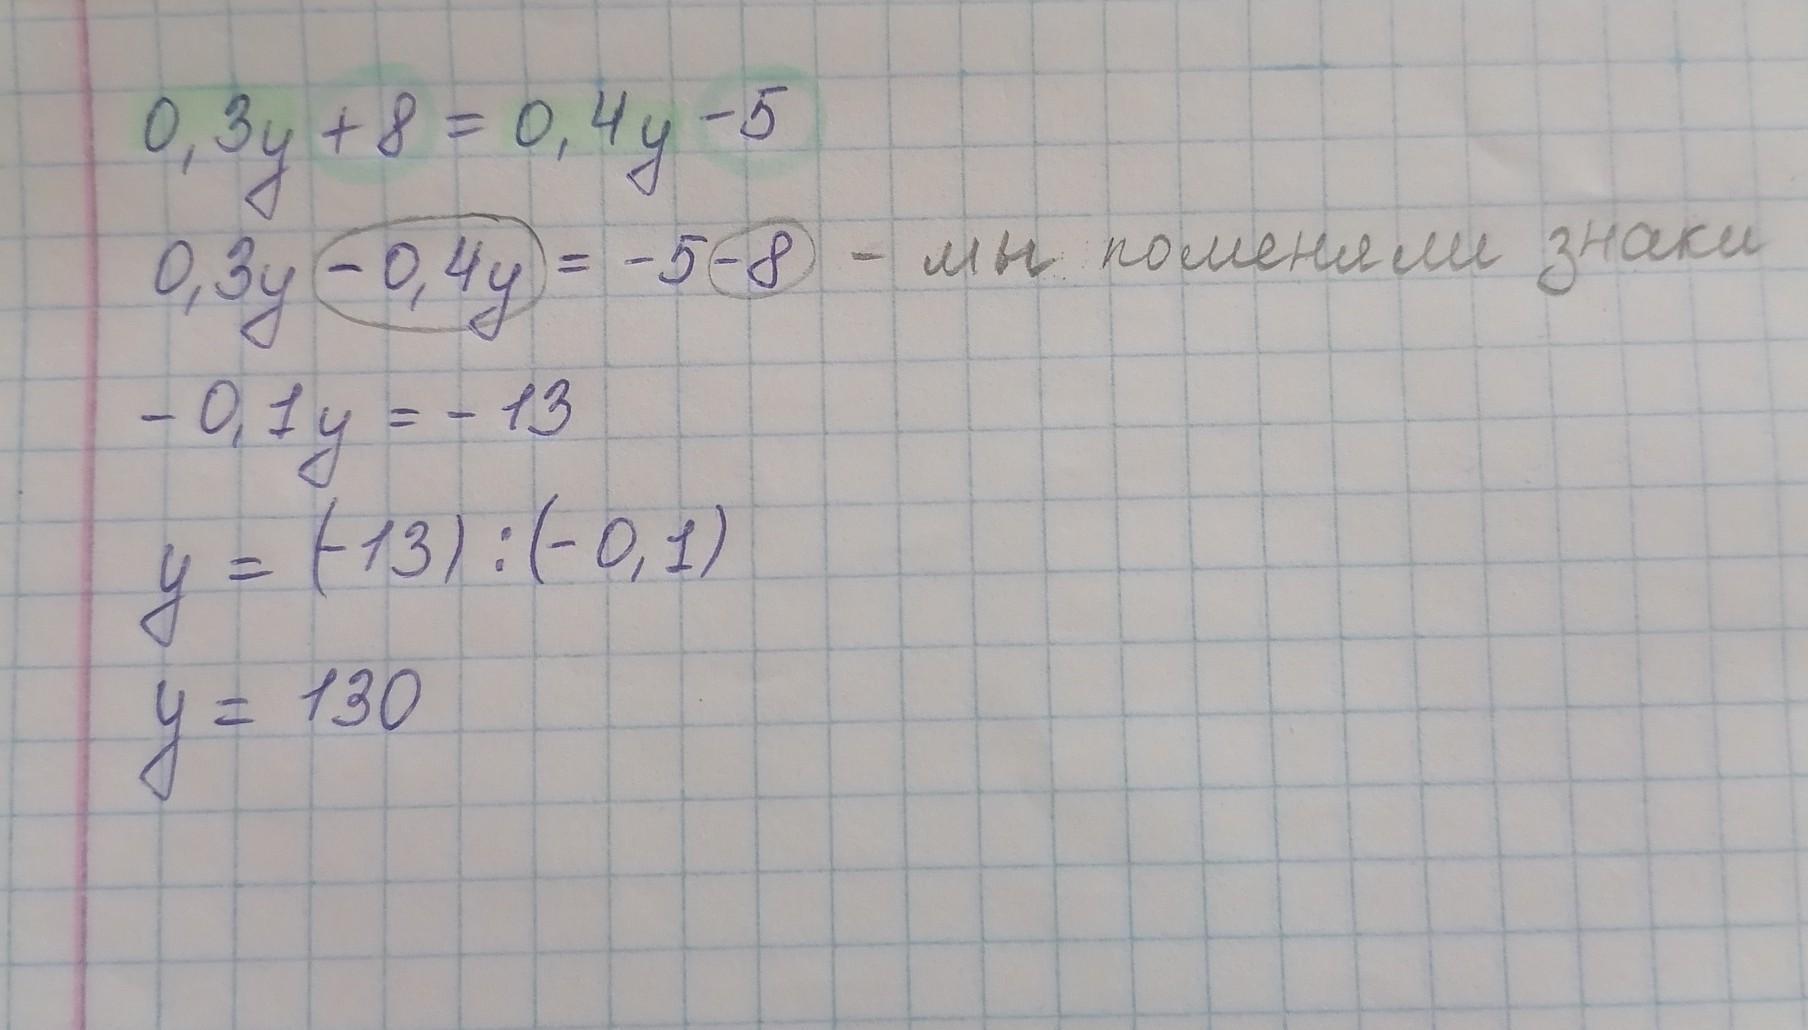 0,3y + 8 = 0,4y - 5
0,3y - 0,4y = -5 - 8 - мы поменяли знаки
- 0,1y = - 13
y = (-13) : (- 0,1)
y = 130